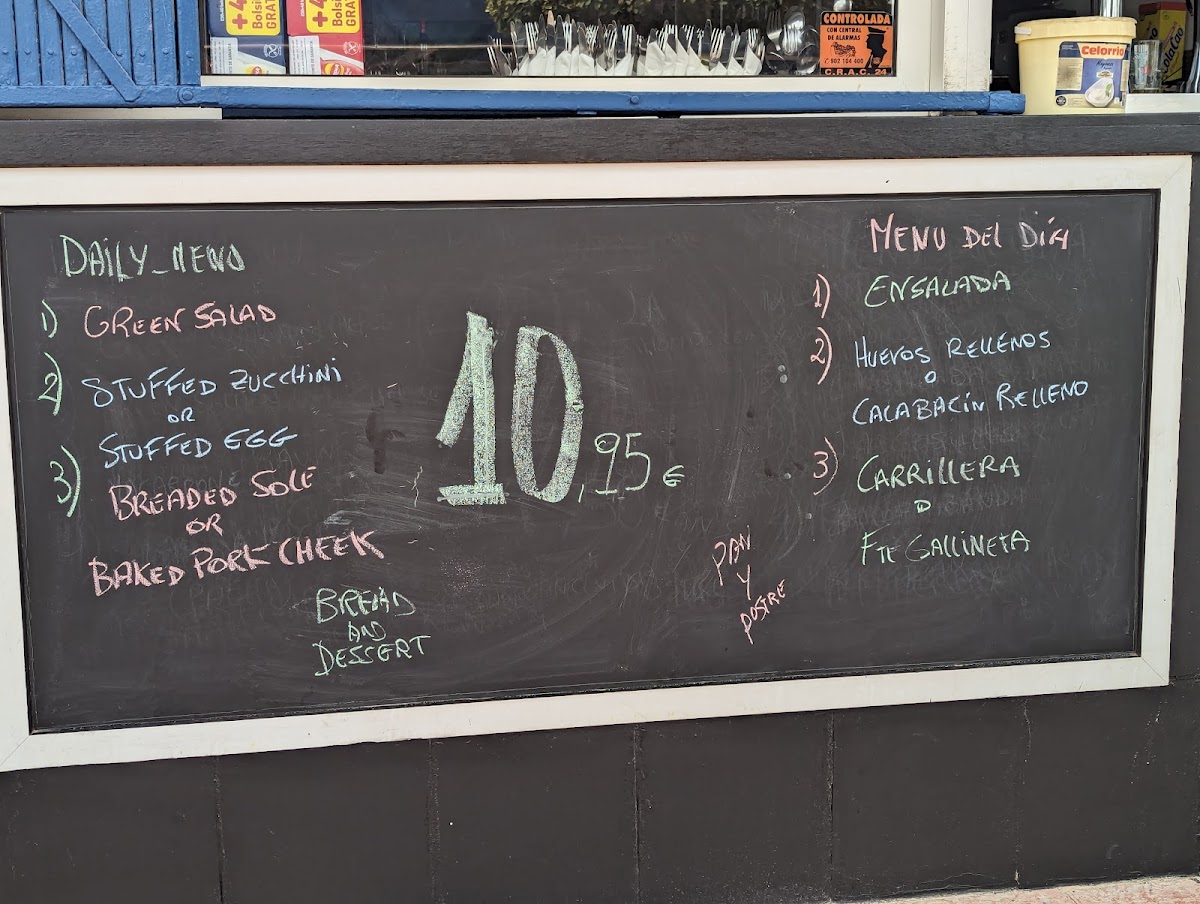 +4
Bolsi
GRATI
+4
Bolsi
GRATI
CONTROLADA
CON CENTRAL
DE ALARMAS
902 104 400
C.R.A.C. 24
Celorrio
DAILY_MENU
1) GREEN SALAD
2) STUFFED ZUCCHINI
OR
STUFFED EGG
3) BREADED SOLE
OR
BAKED PORK CHEEK
BREAD
AND
DESSERT
10,95 €
PAN
Y
POSTRE
MENU DEL DÍA
1) ENSALADA
2) HUEVOS RELLENOS
O
CALABACÍN RELLENO
3) CARRILLERA
O
FTE GALLINETA